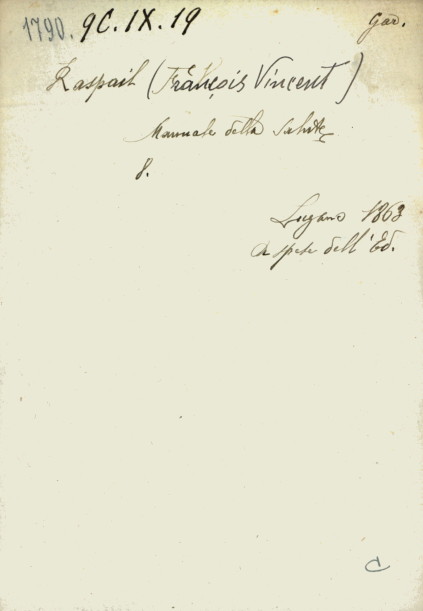 1790. 9C. IX. 19 Gar.
Raspail (François Vincent)
Manuale della Salute
8.
Lugano 1863
a spese dell'Ed.
C